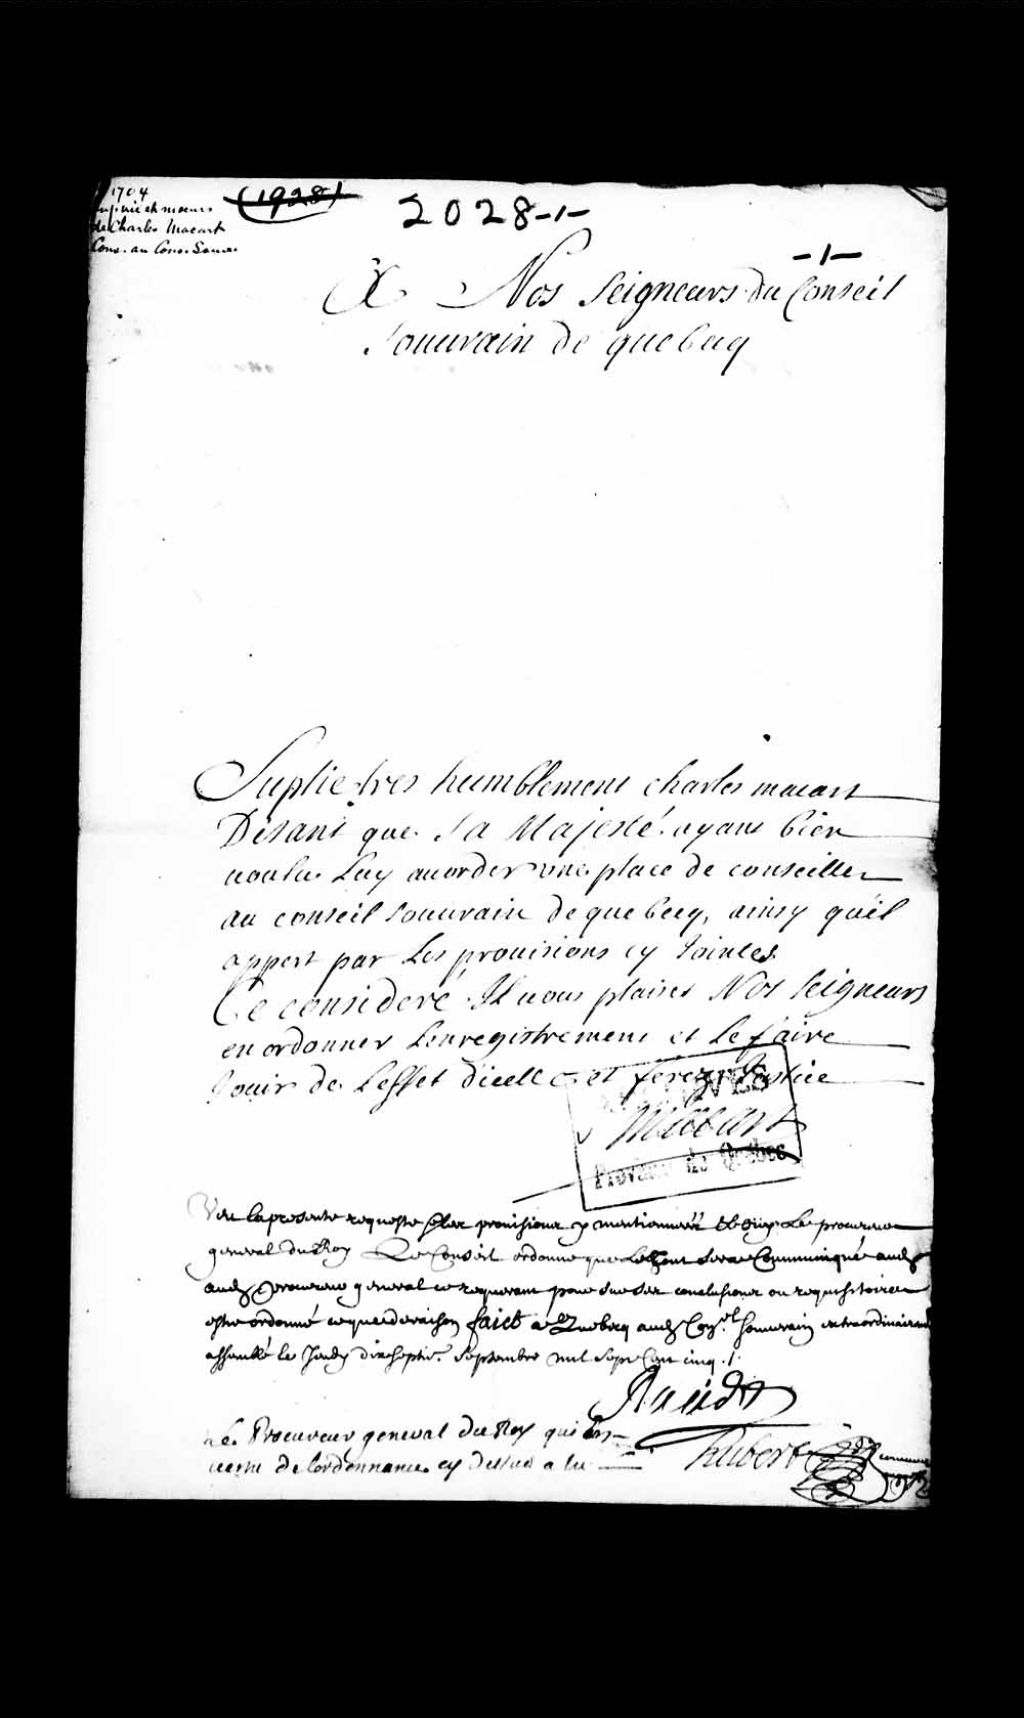 1704
vie et moeurs
de Charles Macart
Cons. au Cons. Souv.
(1928)
2028-1-
-1-
A Nos Seigneurs du Conseil
Souuerain de quebecq
Suplie tres humblement charles macart
Disant que Sa Majesté ayant bien
voulu Luy accorder une place de conseiller
au conseil souuerain de quebecq, ainsy quil
appert par Les prouisions cy Jointes
Ce consideré Il vous plaise Nos Seigneurs
en ordonner Lenregistrement et Le faire
Jouir de Leffet dicelle et ferez Justice
Macart
ARCHIVES
Province de Québec
Veu la presente requeste et les prouisions y mentionnées Le procureur
general du Roy Le Conseil ordonne que le tout sera Communiqué aud
procureur general ce requerant pour sur ses conclusions ou requisitoires
estre ordonné ce que de raison faict a Quebecq aud Con.el Souuerain extraordinairement
assemblé le Jeudy dixsept.e Septembre mil Sept Cent cinq ./.
Raudot
Le Procureur general du Roy qui en
vertu de lordonnance cy dessus a lu
hubert